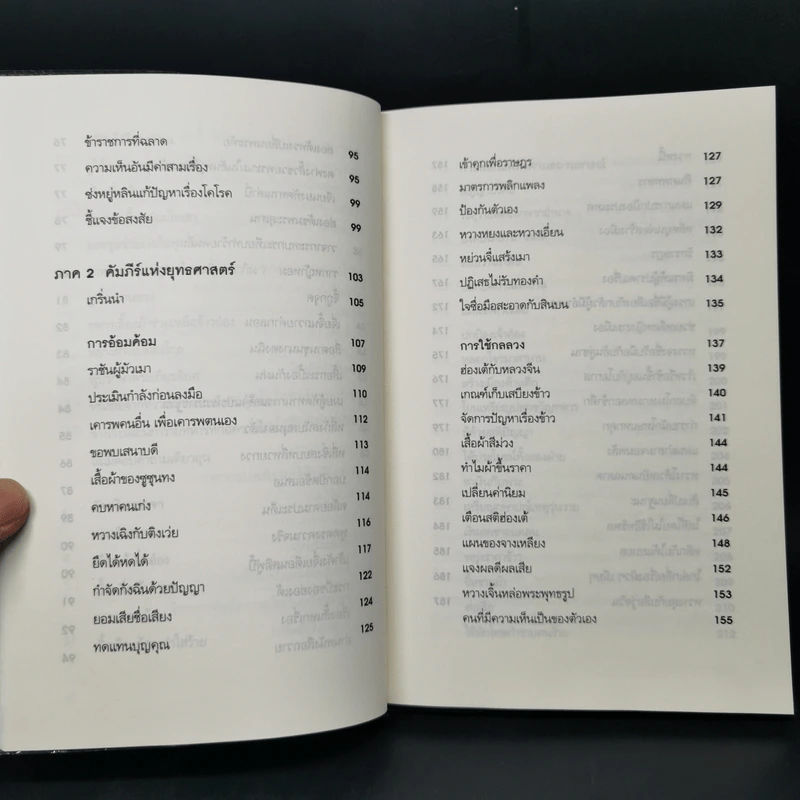 ข้าราชการที่ฉลาด 95
ความเห็นอันมีค่าสามเรื่อง 95
ซ่งหยู่หลินแก้ปัญหาเรื่องโคโรค 99
ชี้แจงข้อสงสัย 99
ภาค 2 คัมภีร์แห่งยุทธศาสตร์ 103
เกริ่นนำ 105
การอ้อมค้อม 107
ราชันผู้มัวเมา 109
ประเมินกำลังก่อนลงมือ 110
เคารพคนอื่น เพื่อเคารพตนเอง 112
ขอพบเสนาบดี 113
เสื้อผ้าของซูซุนทง 114
คบหาคนเก่ง 114
หวางเฉิงกับติงเว่ย 116
ยึดได้หดได้ 117
กำจัดกังฉินด้วยปัญญา 122
ยอมเสียชื่อเสียง 124
ทดแทนบุญคุณ 125
เข้าคุกเพื่อราษฎร 127
มาตรการพลิกแพลง 127
ป้องกันตัวเอง 129
หวางหยงและหวางเอี่ยน 132
หย่วนจี๋แสร้งเมา 133
ปฏิเสธไม่รับทองคำ 134
ใจซื่อมือสะอาดกับสินบน 135
การใช้กลลวง 137
ฮ่องเต้กับหลวงจีน 139
เกณฑ์เก็บเสบียงข้าว 140
จัดการปัญหาเรื่องข้าว 141
เสื้อผ้าสีม่วง 144
ทำไมผ้าขึ้นราคา 144
เปลี่ยนค่านิยม 145
เตือนสติฮ่องเต้ 146
แผนของจางเหลียง 148
แจงผลดีผลเสีย 152
หวางเจิ้นหล่อพระพุทธรูป 153
คนที่มีความเห็นเป็นของตัวเอง 155